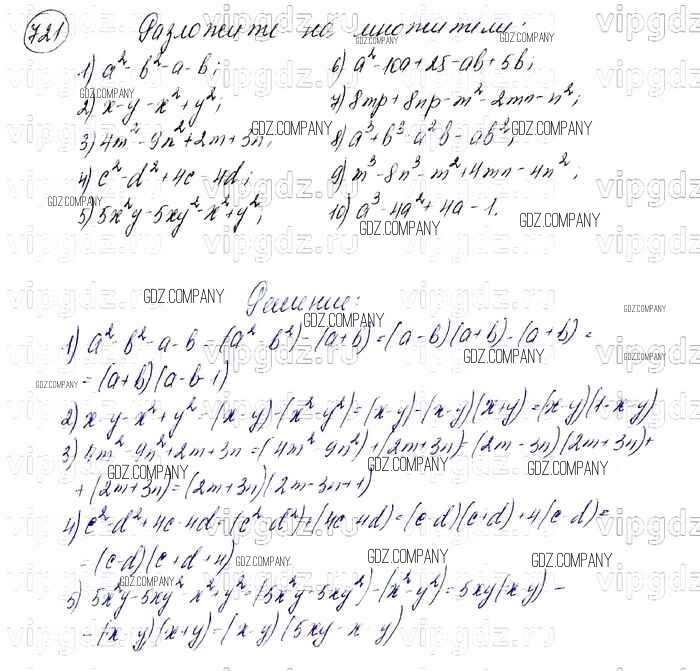 721 Разложите на множители:
1) a² - b² - a - b;
2) x - y - x² + y²;
3) 4m² - 9n² + 2m + 3n;
4) c² - d² + 4c - 4d;
5) 5x²y - 5xy² - x² + y²;
6) a² - 10a + 25 - ab + 5b;
7) 8mp + 8np - m² - 2mn - n²;
8) a³ + b³ - a²b - ab²;
9) m³ - 8n³ - m² + 4mn - 4n²;
10) a³ - 4a² + 4a - 1.
Решение:
1) a² - b² - a - b = (a² - b²) - (a + b) = (a - b)(a + b) - (a + b) =
= (a + b)(a - b - 1)
2) x - y - x² + y² = (x - y) - (x² - y²) = (x - y) - (x - y)(x + y) = (x - y)(1 - x - y)
3) 4m² - 9n² + 2m + 3n = (4m² - 9n²) + (2m + 3n) = (2m - 3n)(2m + 3n) +
+ (2m + 3n) = (2m + 3n)(2m - 3n + 1)
4) c² - d² + 4c - 4d = (c² - d²) + (4c - 4d) = (c - d)(c + d) + 4(c - d) =
= (c - d)(c + d + 4)
5) 5x²y - 5xy² - x² + y² = (5x²y - 5xy²) - (x² - y²) = 5xy(x - y) -
- (x - y)(x + y) = (x - y)(5xy - x - y)
GDZ.COMPANY
vipgdz.ru